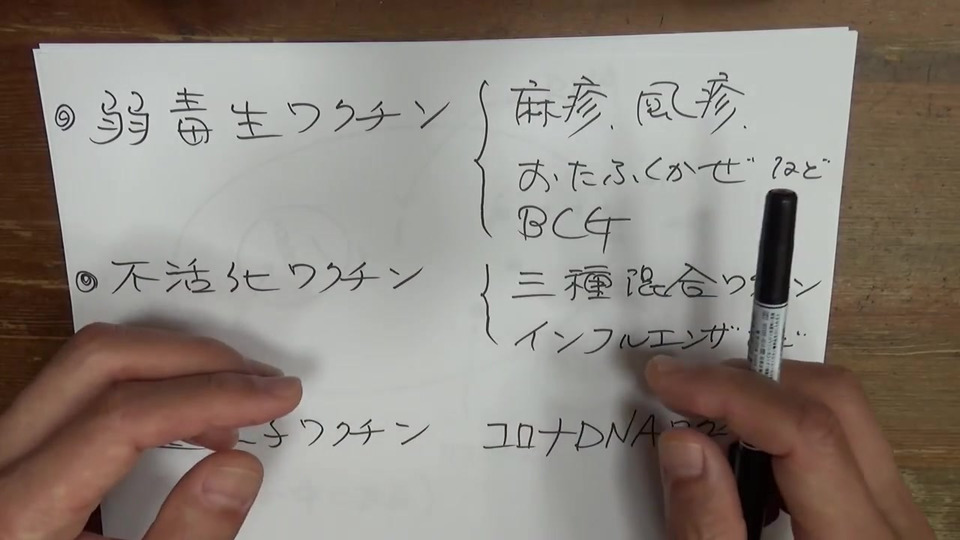 ◎ 弱毒生ワクチン
麻疹、風疹、
おたふくかぜ など
BCG
◎ 不活化ワクチン
三種混合ワクチン
インフルエンザ
子ワクチン
コロナDNAワク